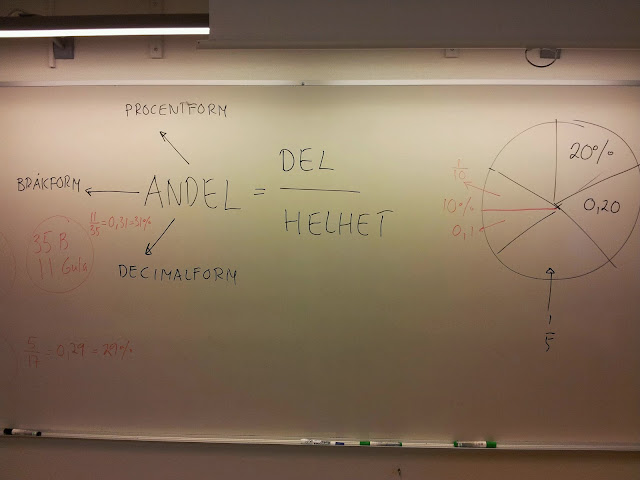 PROCENTFORM
BRÅKFORM
ANDEL = DEL
HELHET
11/35 = 0,31 = 31%
DECIMALFORM
35 B
11 Gula
5/17 = 0,29 = 29%
20%
0,20
1/10
10%
0,1
1/5